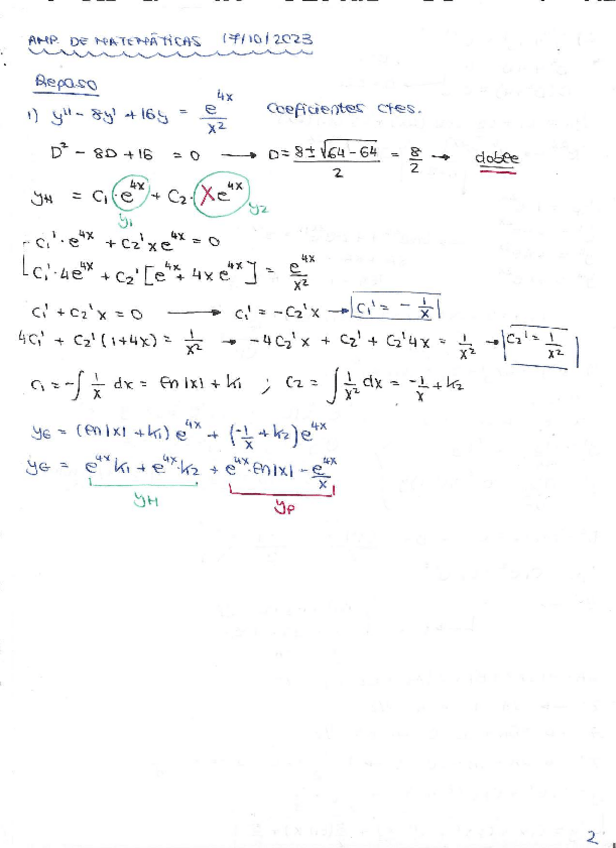 AMP. DE MATEMÁTICAS 17/10/2023
Repaso
1) y'' - 8y' + 16y = e^{4x}/x² Coeficientes ctes.
D² - 8D + 16 = 0 → D = (8 ± √(64-64))/2 = 8/2 → doble
y_H = C₁·e^{4x} + C₂·xe^{4x}
y₁ y₂
C₁'·e^{4x} + C₂'xe^{4x} = 0
C₁'·4e^{4x} + C₂'[e^{4x} + 4xe^{4x}] = e^{4x}/x²
C₁' + C₂'x = 0 → C₁' = -C₂'x → C₁' = -1/x
4C₁' + C₂'(1+4x) = 1/x² → -4C₂'x + C₂' + C₂'4x = 1/x² → C₂' = 1/x²
C₁ = -∫ 1/x dx = ln|x| + k₁ ; C₂ = ∫ 1/x² dx = -1/x + k₂
y_G = (ln|x| + k₁)e^{4x} + (-1/x + k₂)e^{4x}
y_G = e^{4x}k₁ + e^{4x}·k₂ + e^{4x}·ln|x| - e^{4x}/x
y_H y_p
2